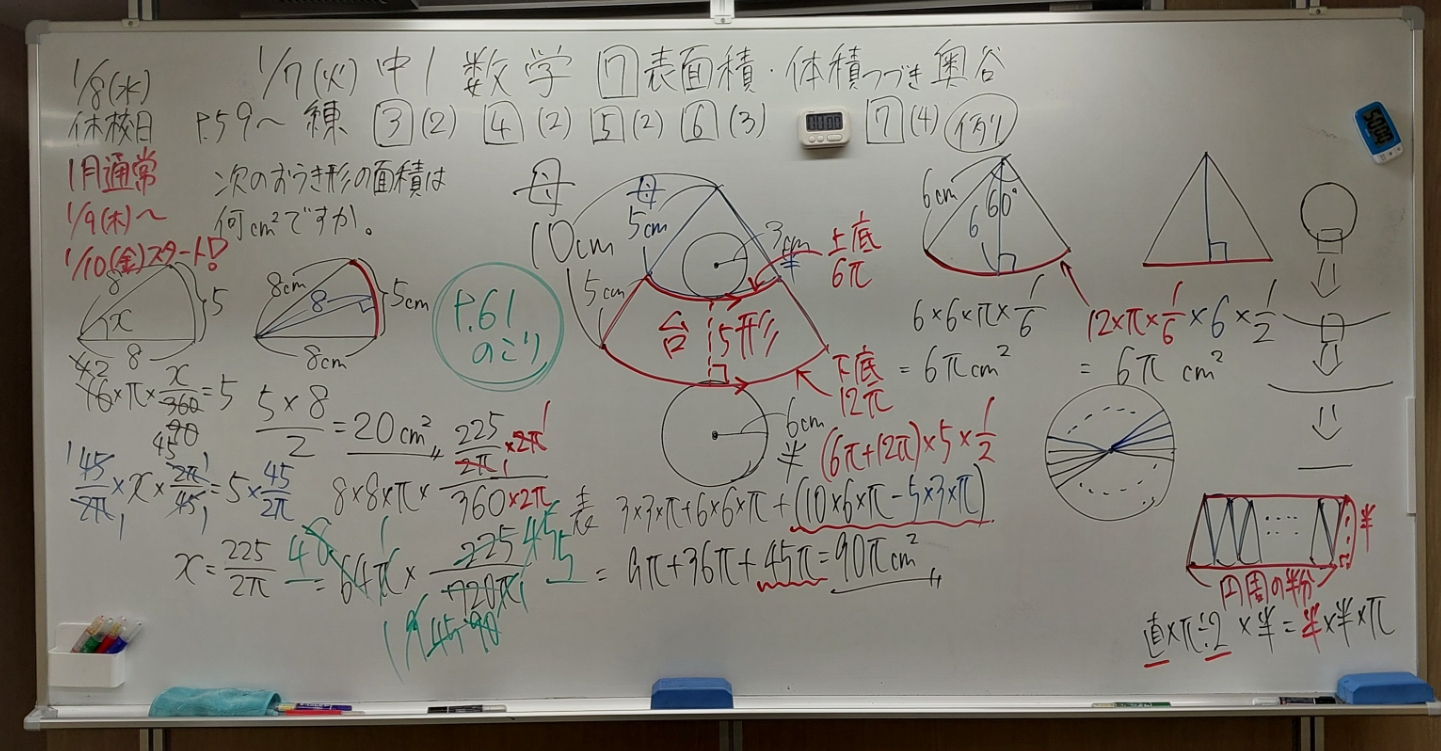 1/8(水)
休校日
1月通常
1/9(木)～
1/10(金)スタート!
1/7(火) 中1 数学 7 表面積・体積つづき 奥谷
P.59～ 練 3(2) 4(2) 5(2) 6(3) 7(4) 例り
次のおうぎ形の面積は
何cm²ですか。
8
5
x
8
8cm
8
5cm
8cm
P.61
のこり
16×π×x/360=5
45/2π×x×2π/45=5×45/2π
x=225/2π
5×8/2=20cm²
8×8×π×225/2π×2π/360×2π
=64π×225/720π
母
10cm
母
5cm
5cm
3cm
半
上底
6π
台形
5
下底
12π
6cm
半
(6π+12π)×5×1/2
表 3×3×π+6×6×π+(10×6×π-5×3×π)
=9π+36π+45π=90πcm²
6cm
60°
6
6×6×π×1/6
=6πcm²
12×π×1/6×6×1/2
=6π cm²
半
円周の半分
直×π÷2×半=半×半×π